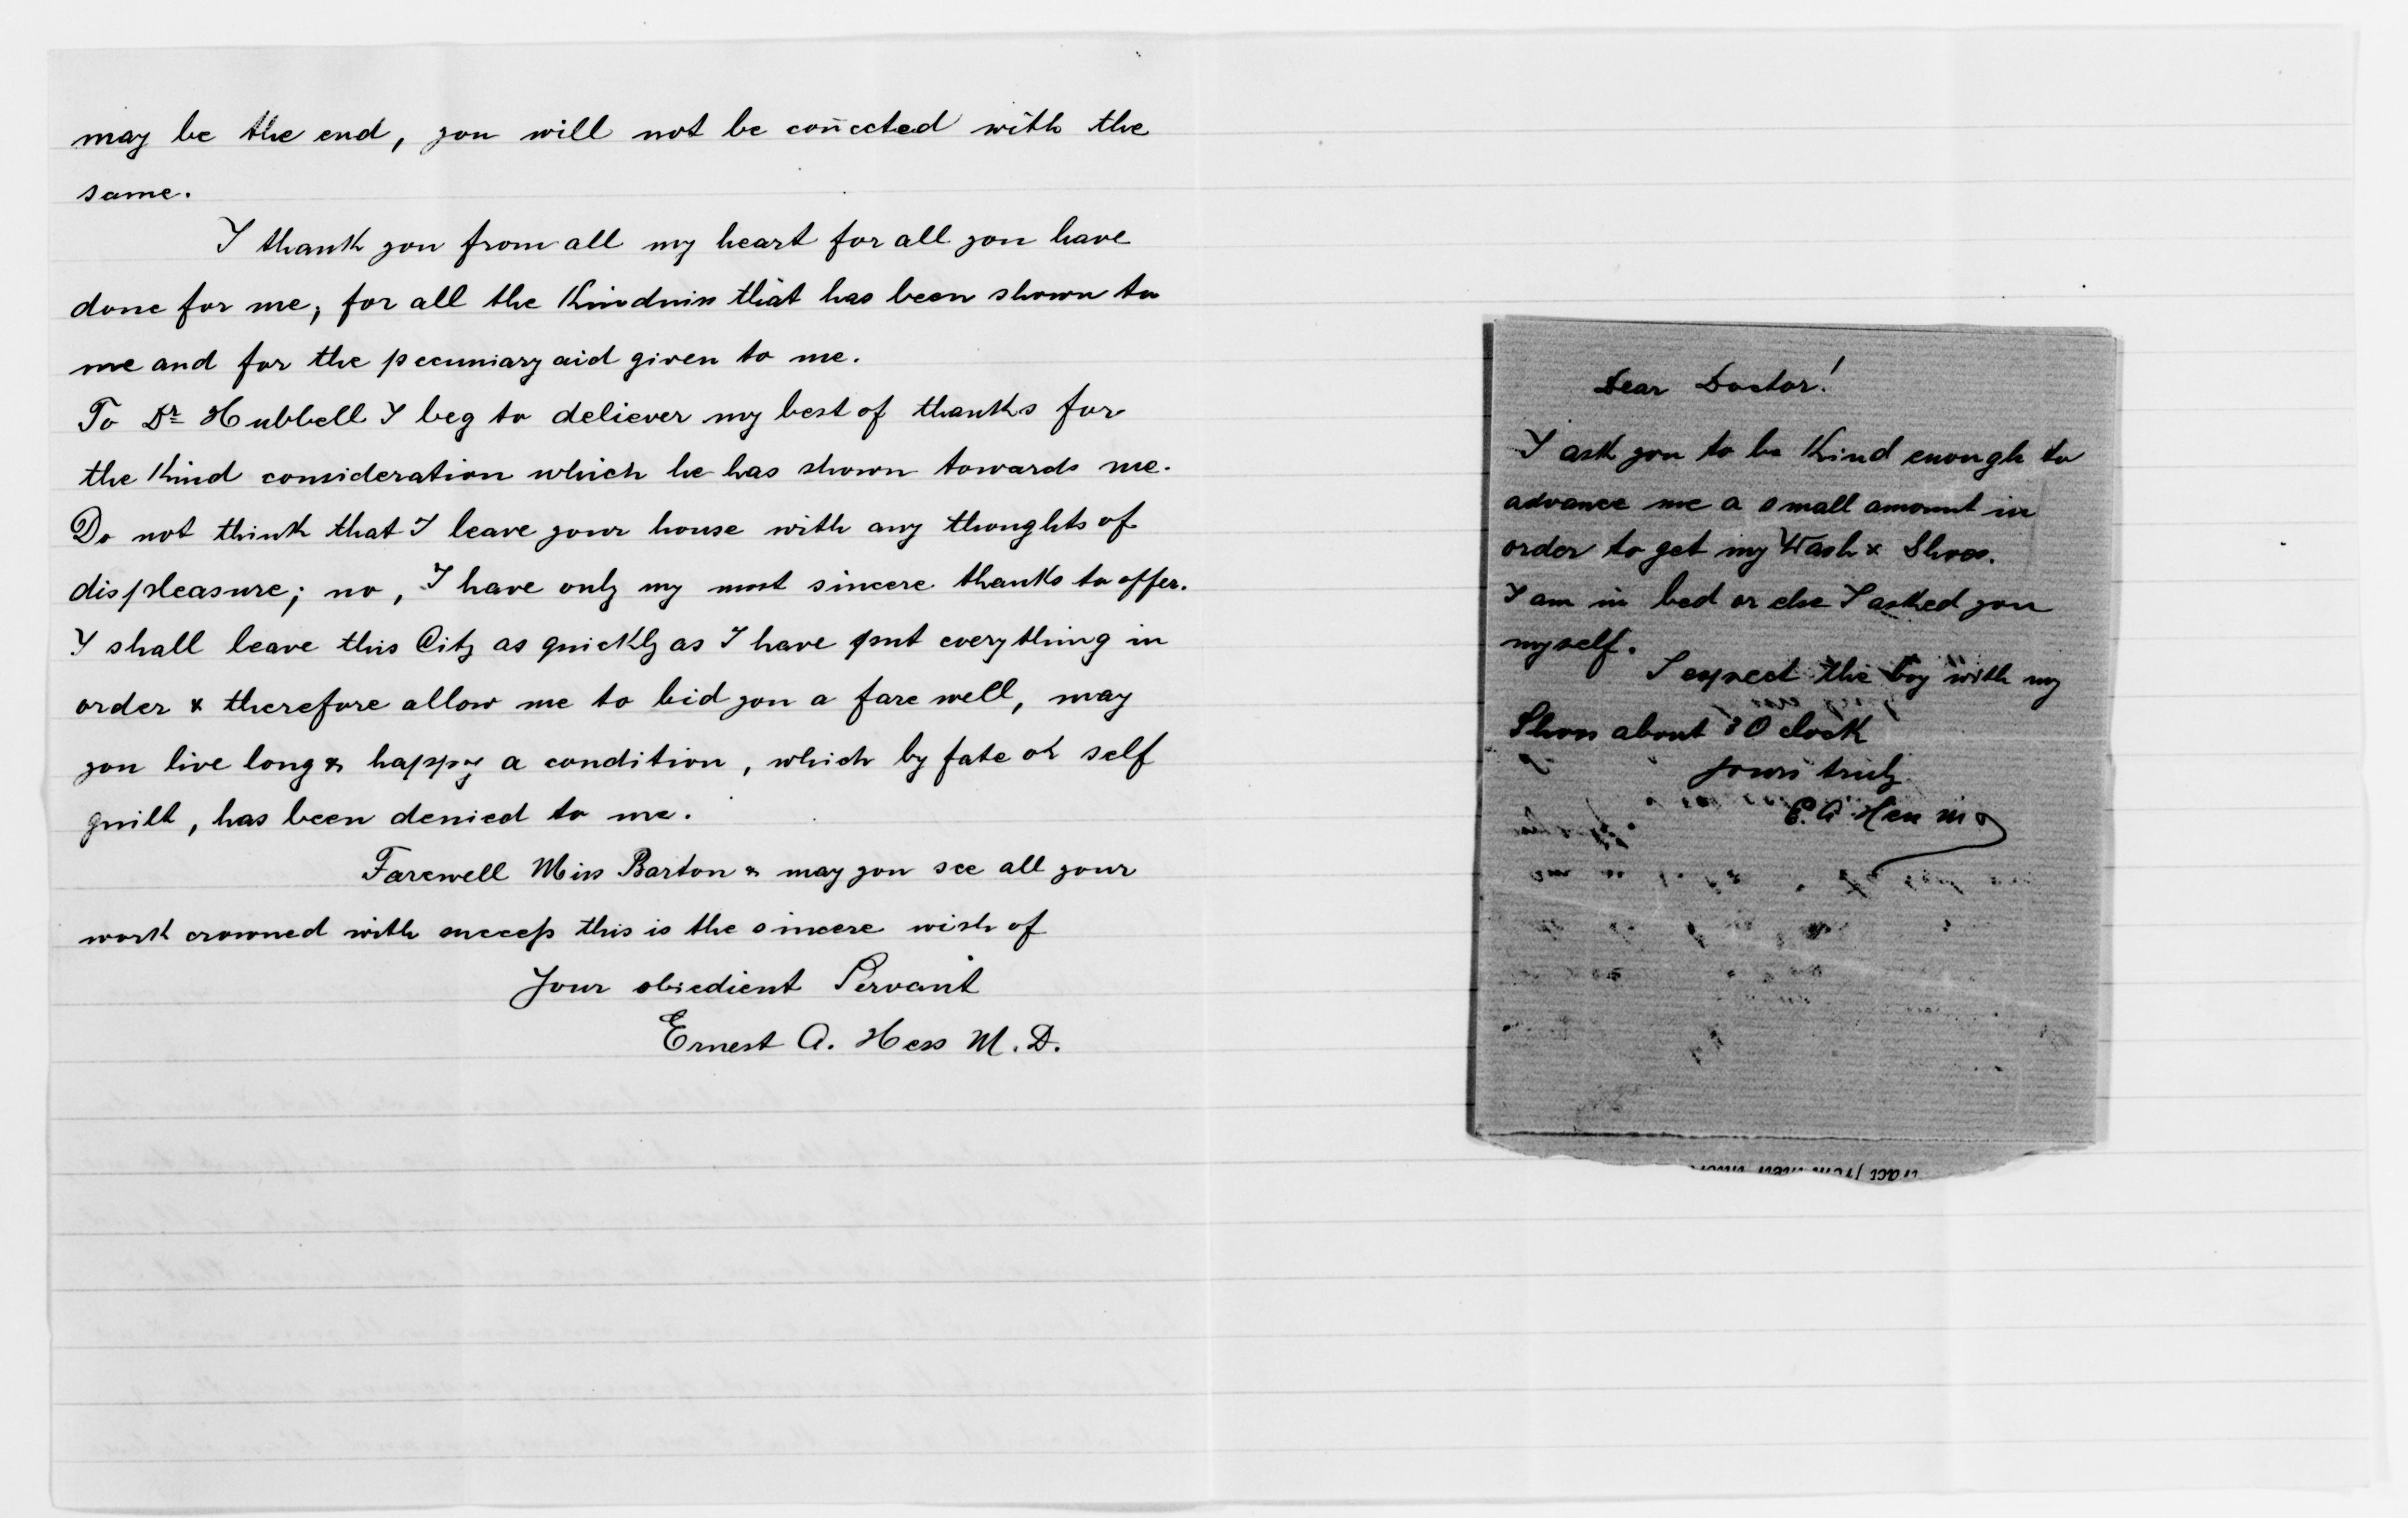 may be the end, you will not be coñected with the
same.
I thank you from all my heart for all you have
done for me; for all the Kindniss that has been shown to
me and for the pecuniary aid given to me.
To Dr Hubbell I beg to deliever my best of thanks for
the Kind consideration which he has shown towards me.
Do not think that I leave your house with any thoughts of
displeasure; no, I have only my most sincere thanks to offer.
I shall leave this City as quickly as I have put everything in
order & therefore allow me to bid you a fare well, may
you live long & happy a condition, which by fate or self
guilt, has been denied to me.
Farewell Miss Barton & may you see all your
work crowned with success this is the sincere wish of
Your obiedient Servant
Ernest A. Hess M. D.
Dear Doctor!
I ask you to be Kind enough to
advance me a small amount in
order to get my Wash & Shoes.
I am in bed or else I asked you
myself.
I expect the boy with my
Shoes about O clock
Yours truly
E. A. Hess MD